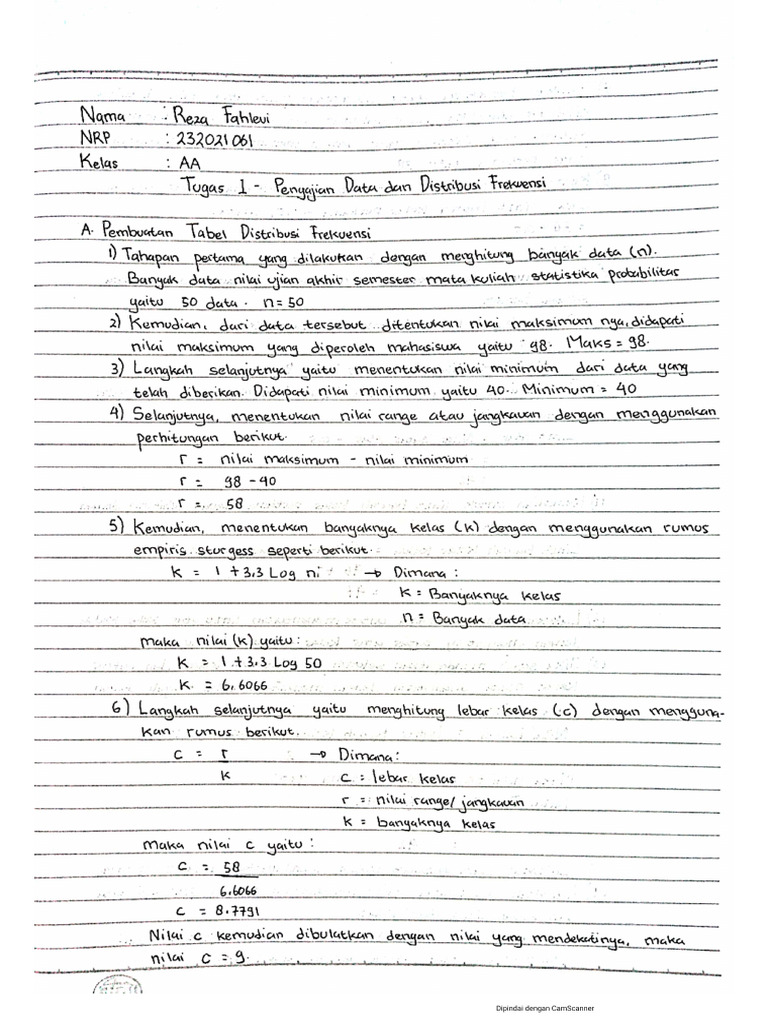 Nama : Reza Fahlevi
NRP : 232021061
Kelas : AA
Tugas 1 - Penyajian Data dan Distribusi Frekuensi
A. Pembuatan Tabel Distribusi Frekuensi
1) Tahapan pertama yang dilakukan dengan menghitung banyak data (n).
Banyak data nilai ujian akhir semester mata kuliah statistika probabilitas
yaitu 50 data. n=50
2) Kemudian, dari data tersebut ditentukan nilai maksimum nya, didapati
nilai maksimum yang diperoleh mahasiswa yaitu 98. Maks = 98.
3) Langkah selanjutnya yaitu menentukan nilai minimum dari data yang
telah diberikan. Didapati nilai minimum yaitu 40. Minimum = 40
4) Selanjutnya, menentukan nilai range atau jangkauan dengan menggunakan
perhitungan berikut.
r = nilai maksimum - nilai minimum
r = 98 - 40
r = 58
5) Kemudian, menentukan banyaknya kelas (k) dengan menggunakan rumus
empiris sturgess seperti berikut.
k = 1 + 3,3 Log n → Dimana :
k = Banyaknya kelas
n = Banyak data
maka nilai (k) yaitu :
k = 1 + 3,3 Log 50
k = 6,6066
6) Langkah selanjutnya yaitu menghitung lebar kelas (c) dengan mengguna-
kan rumus berikut.
c = r → Dimana :
k c = lebar kelas
r = nilai range/ jangkauan
k = banyaknya kelas
maka nilai c yaitu :
c = 58
6,6066
c = 8,7791
Nilai c kemudian dibulatkan dengan nilai yang mendekatinya, maka
nilai c = 9.
Dipindai dengan CamScanner